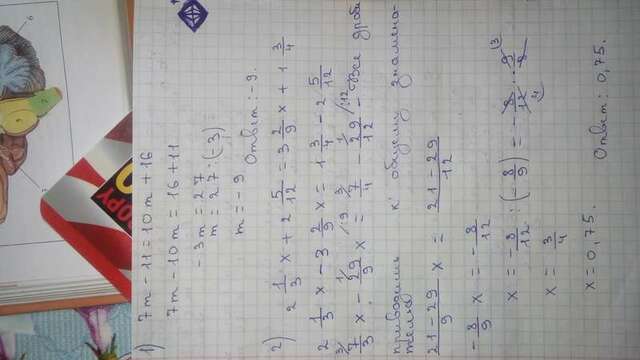 1) 7m - 11 = 10m + 16
7m - 10m = 16 + 11
-3m = 27
m = 27 : (-3)
m = -9
Ответ: -9.
2) 2 1/3 x + 2 5/12 = 3 2/9 x + 1 3/4
2 1/3 x - 3 2/9 x = 1 3/4 - 2 5/12
7/3 x - 29/9 x = 7/4 - 29/12 - Все дроби
приводим к общему знамена-
телю
21-29/9 x = 21-29/12
-8/9 x = -8/12
x = -8/12 : (-8/9) = -8/12 · 9/8
x = 3/4
x = 0,75.
Ответ: 0,75.
COPY
6